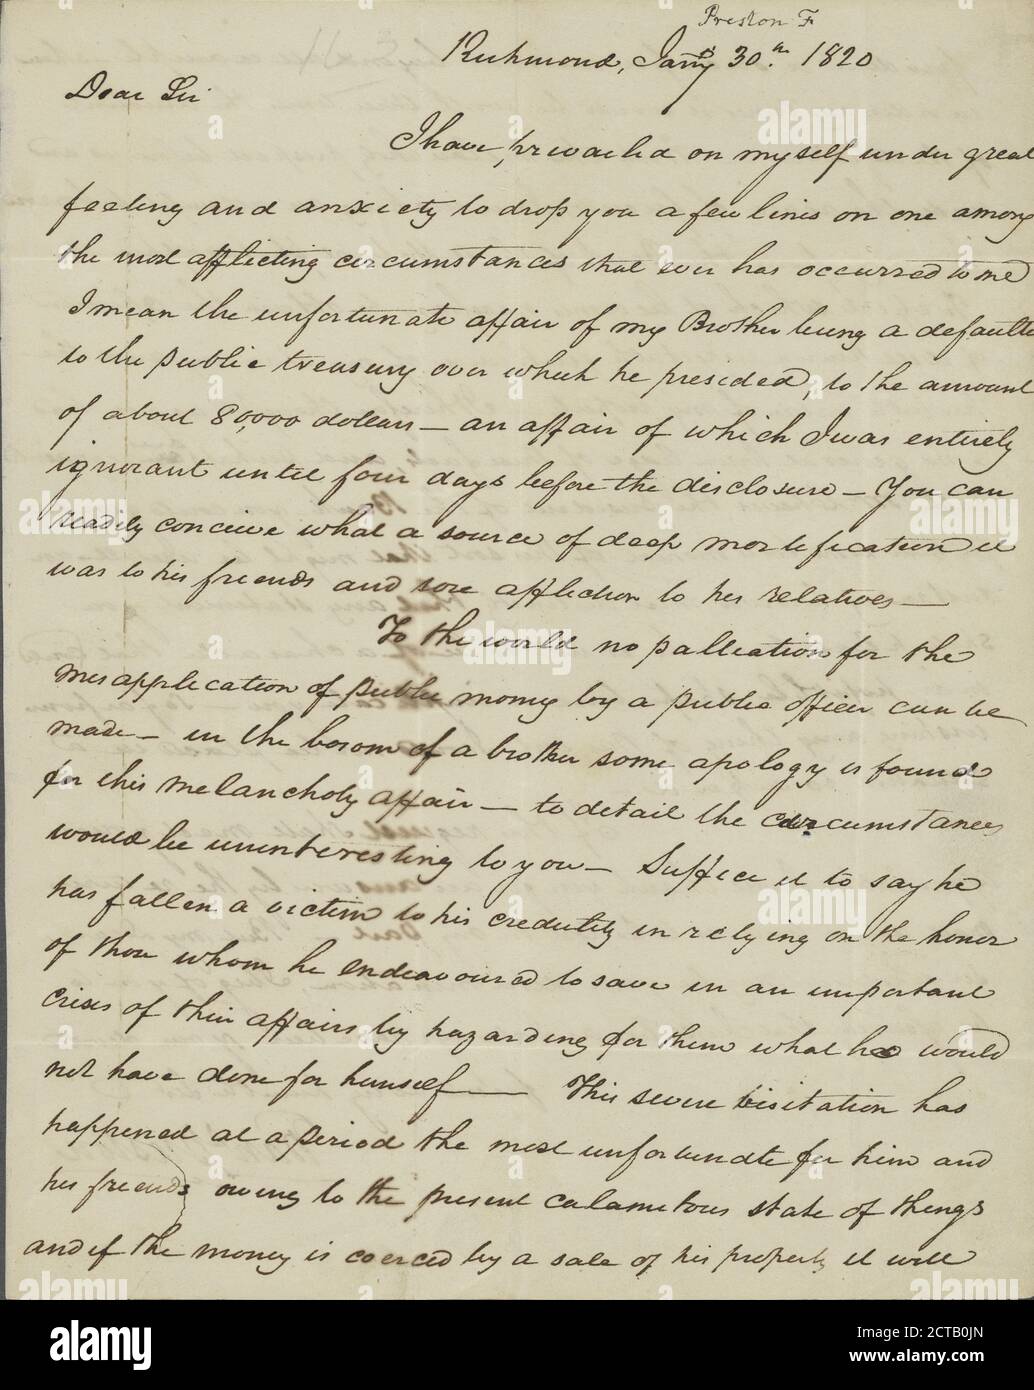 Preston F
Richmond, Jany 30th. 1820
Dear Sir
I have prevailed on myself under great
feeling and anxiety to drop you a few lines on one among
the most afflicting circumstances that ever has occurred to me
I mean the unfortunate affair of my Brother being a defaulte
to the public treasury over which he presided, to the amount
of about 80,000 dollars — an affair of which I was entirely
ignorant until four days before the disclosure — You can
readily conceive what a source of deep mortification it
was to his friends and sore affliction to his relatives —
To the world no palliation for the
misapplication of public money by a public officer can be
made — in the bosom of a brother some apology is found
for this melancholy affair — to detail the circumstances
would be uninteresting to you — Suffice it to say he
has fallen a victim to his credulity in relying on the honor
of those whom he endeavoured to save in an important
crisis of their affairs by hazarding for them what he would
not have done for himself — This severe visitation has
happened at a period the most unfortunate for him and
his friends, owing to the present calamitous state of things
and if the money is coerced by a sale of his property it will
alamy
Image ID: 2CTB0JN
www.alamy.com